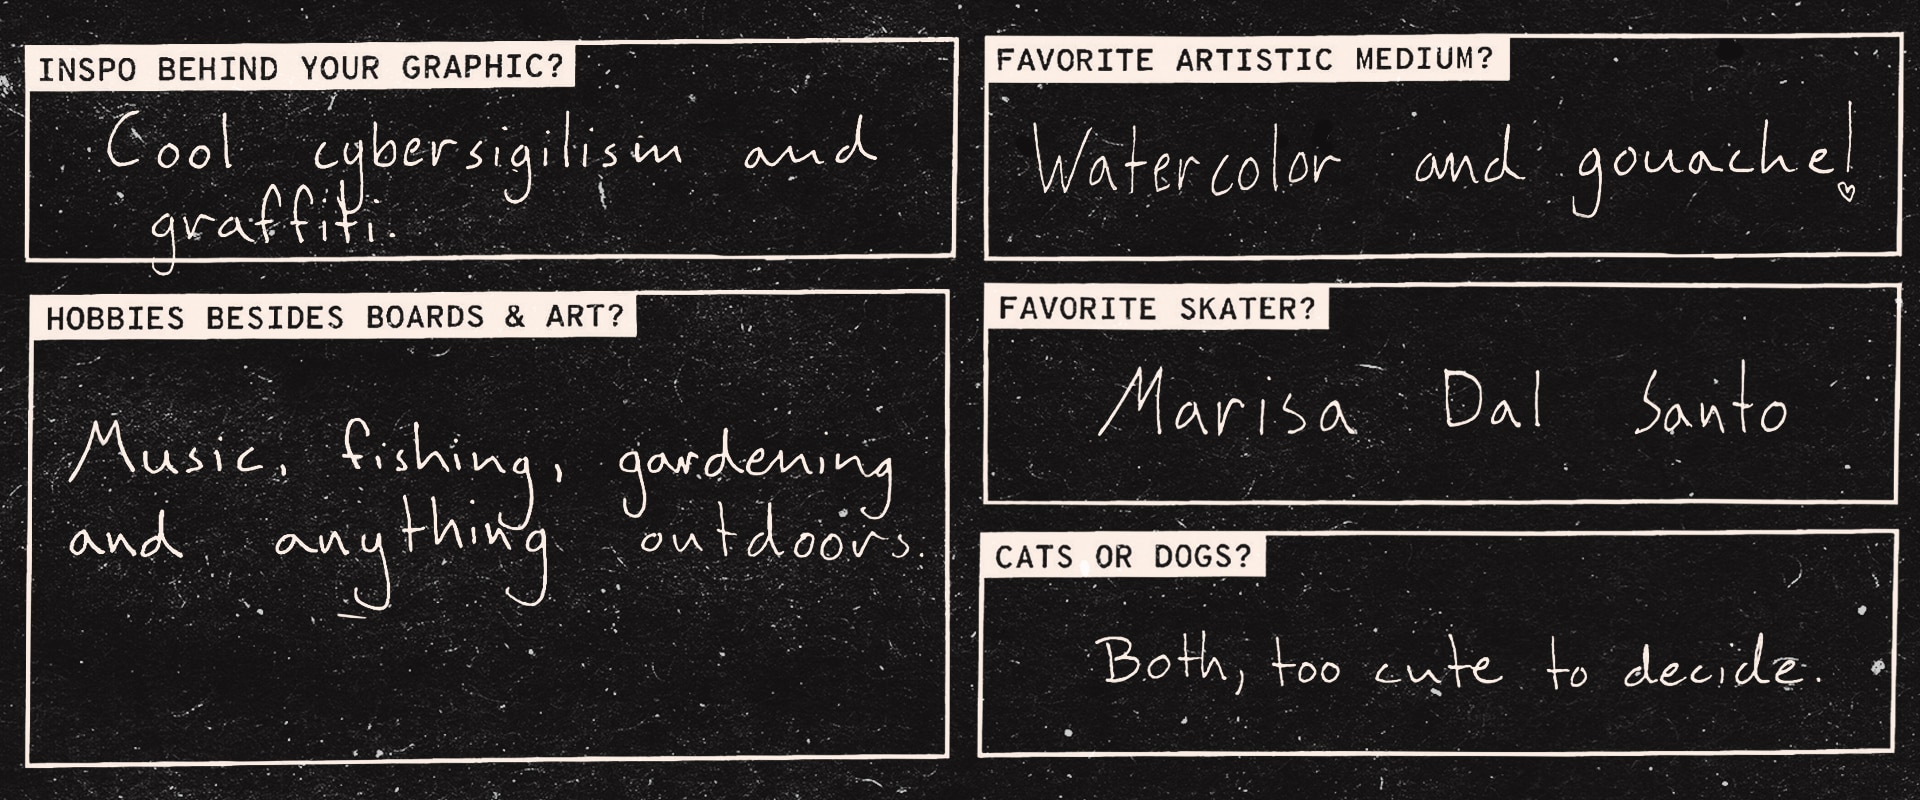 INSPO BEHIND YOUR GRAPHIC?
Cool cybersigilism and
graffiti.
HOBBIES BESIDES BOARDS & ART?
Music, fishing, gardening
and anything outdoors.
FAVORITE ARTISTIC MEDIUM?
Watercolor and gouache!
FAVORITE SKATER?
Marisa Dal Santo
CATS OR DOGS?
Both, too cute to decide.